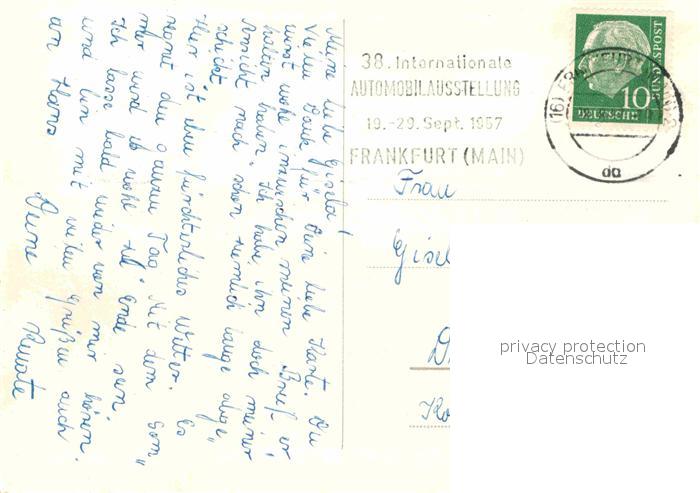 Meine liebe Gisela!
Vielen Dank für Deine liebe Karte. Du
wirst wohl inzwischen meinen Brief er
halten haben. Ich habe ihn doch meiner
Ansicht nach schon ziemlich lange abge„
schickt.
Hier ist ein fürchterliches Wetter. Es
den ganzen Tag. Mit dem Som„
mer wird es wohl zu Ende sein.
Ich lasse bald wieder von mir hören
und bin mit vielen Grüßen auch
an Hans
Deine
Renate
38. Internationale
AUTOMOBILAUSSTELLUNG
19.-29. Sept. 1957
FRANKFURT (MAIN)
(16) FRANKFURT
da
10
DEUTSCHE
BUNDESPOST
Frau
Gisel
privacy protection
Datenschutz